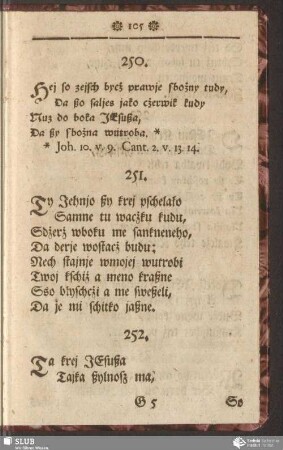 * 105 *
250.
Hej so zejsch bycż prawje sbożny tudy,
Da ßo saljes jako cżerwik kudy
Nuz do boka JEsußa,
Da ßy sbożna wutroba. *
* Joh. 10. v. 9. Cant. 2. v. 13. 14.
251.
Ty Jehnjo ßy krej pschelało
Samne tu waczku kudu,
Sdżerż wboku me sankneneho,
Da derje wostacż budu;
Nech stajnje wmojej wutrobi
Twoj kschiż a meno kraßne
Sso blyschcżi a me sweßeli,
Da je mi schitko jaßne.
252.
Ta krej JEsußa
Tajka ßylnosz ma,
G 5 So
SLUB
Wir führen Wissen.